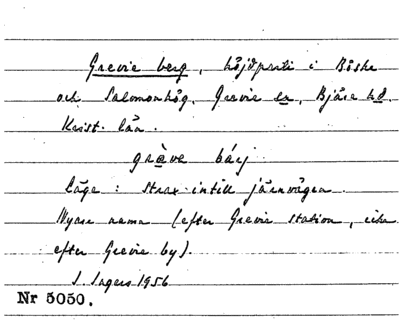 Grevie berg, höjdparti i Böske
och Salomonhög, Grevie sn, Bjäre hd.
Krist. län.
grève bárj
läge: strax intill järnvägen.
Nyare namn (efter Grevie station, icke
efter Grevie by).
S. Ingers 1956
Nr 5050.